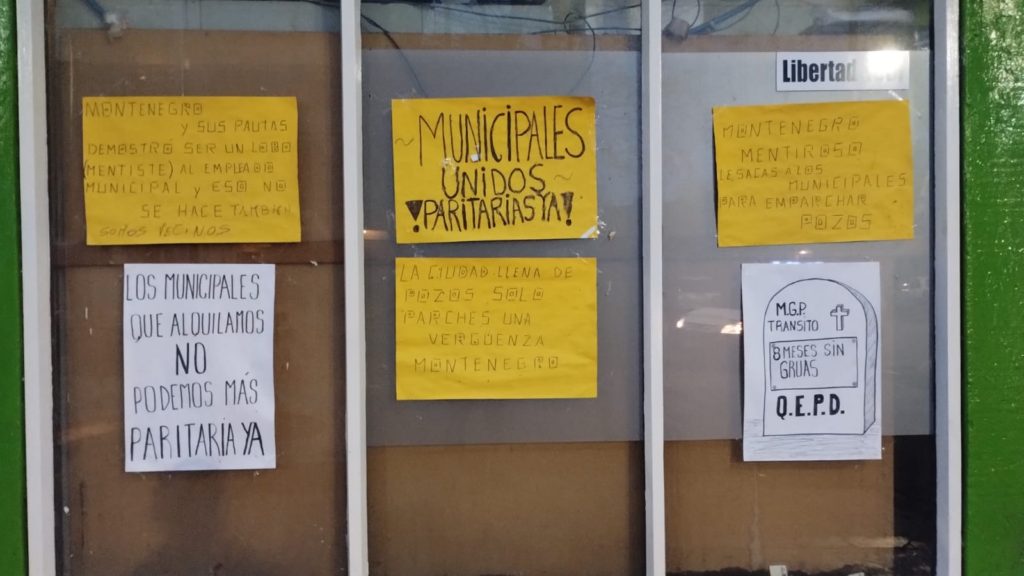 MONTENEGRO
Y SUS PAUTAS
DEMOSTRO SER UN LOBO
(MENTISTE) AL EMPLEADO
MUNICIPAL Y ESO NO
SE HACE TAMBIEN
SOMOS VECINOS
LOS MUNICIPALES
QUE ALQUILAMOS
NO
PODEMOS MÁS
PARITARIA YA
~MUNICIPALES
UNIDOS~
¡PARITARIAS YA!
LA CIUDAD LLENA DE
POZOS SOLO
PARCHES UNA
VERGÜENZA
MONTENEGRO
Libertad
MONTENEGRO
MENTIROSO
LE SACAS A LOS
MUNICIPALES
PARA EMPARCHAR
POZOS
M.G.P.
TRANSITO
8 MESES SIN
GRUAS
Q.E.P.D.